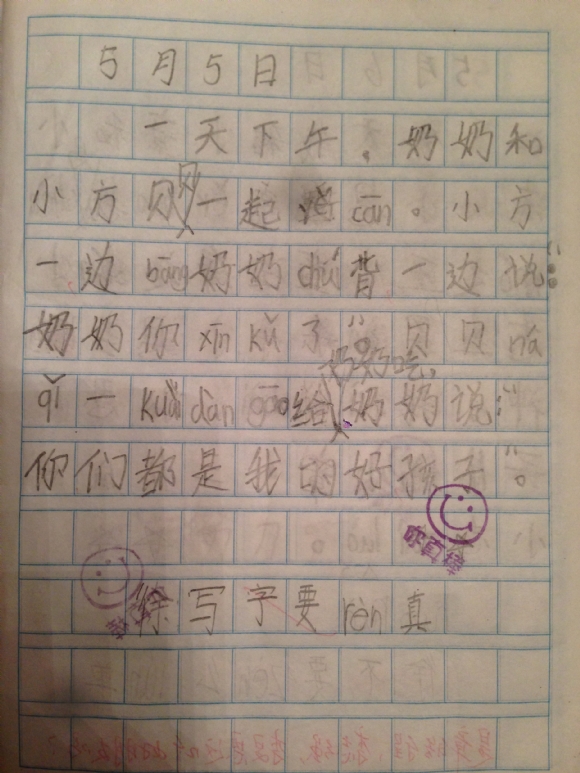 5月5日
一天下午,奶奶和
小方贝贝一起 cān。小方
一边bāng奶奶chuí背一边说:“
奶奶你xīn kǔ了”。贝贝ná
奶奶吃,
qǐ一kuài dàn gāo给奶奶说:“
你们都是我的好孩子”。
你真棒
写字要rèn真